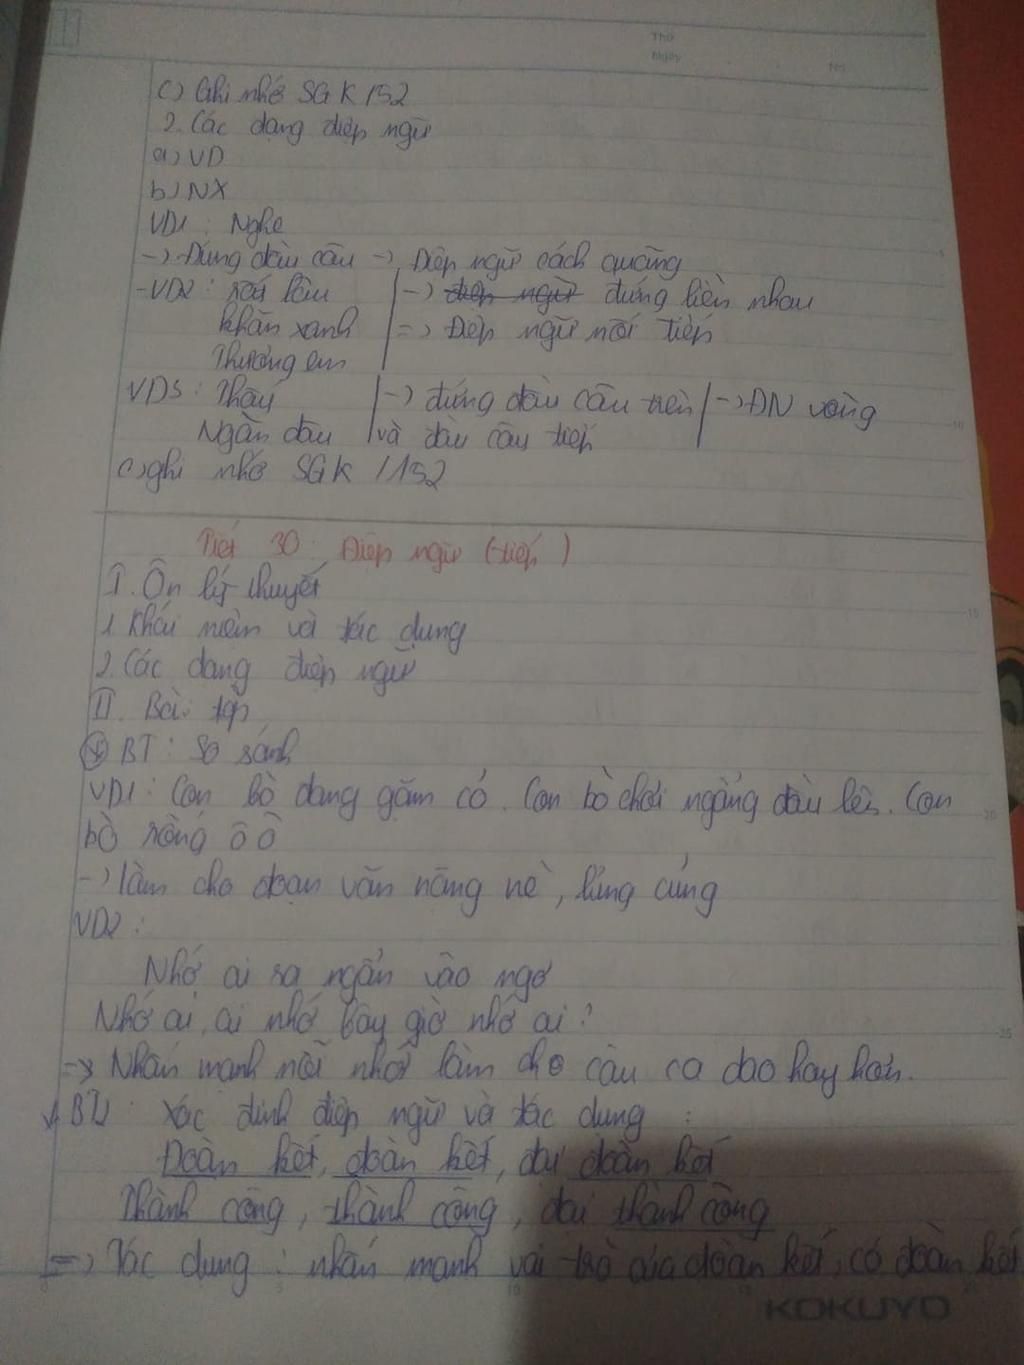 Thứ
Ngày
No
c) Ghi nhớ SGK 152
2. Các dạng điệp ngữ
a) VD
b) NX
VD1 : Nghe
-> Đứng đầu câu -> Điệp ngữ cách quãng
- VD2 : rất lâu -> điệp ngữ đứng liền nhau
khăn xanh => Điệp ngữ nối tiếp
Thương em
VD3 : Thấy -> đứng đầu câu trên -> ĐN vòng
Ngàn dâu và đầu câu tiếp
c) ghi nhớ SGK / 152
Tiết 30 : Điệp ngữ (tiếp)
I. Ôn lý thuyết
1. Khái niệm và tác dụng
2. Các dạng điệp ngữ
II. Bài tập
BT : So sánh
VD1 : Con bò đang gặm cỏ. Con bò ngẩng đầu lên. Con
bò rống ò ò
-> làm cho đoạn văn nặng nề, lủng củng
VD2 :
Nhớ ai ra ngẩn vào ngơ
Nhớ ai, ai nhớ bây giờ nhớ ai ?
=> Nhấn mạnh nỗi nhớ làm cho câu ca dao hay hơn.
BT1 : Xác định điệp ngữ và tác dụng :
Đoàn kết, đoàn kết, đại đoàn kết
Thành công, thành công, đại thành công
=> Tác dụng : nhấn mạnh vai trò của đoàn kết, có đoàn kết
KOKUYO